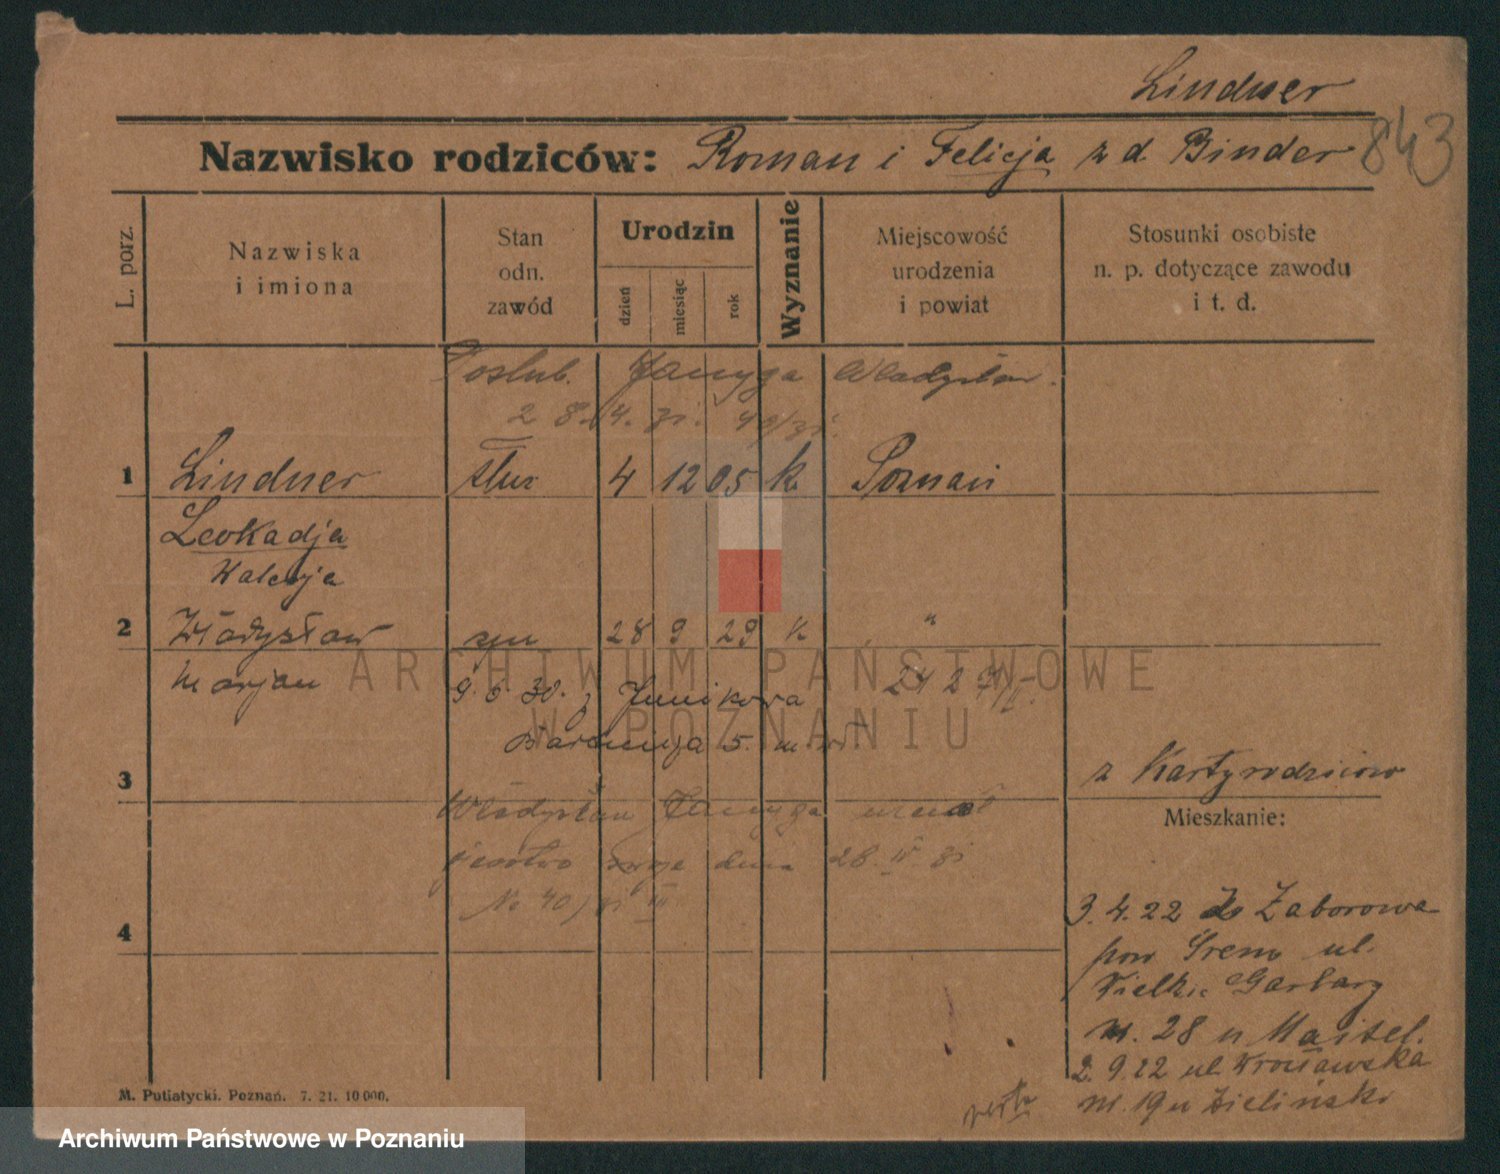 Lindner
Nazwisko rodziców: Roman i Felicja z d. Binder
843
L. porz.
Nazwiska
i imiona
Stan
odn.
zawód
Urodzin
dzień
miesiąc
rok
Wyznanie
Miejscowość
urodzenia
i powiat
Stosunki osobiste
n. p. dotyczące zawodu
i t. d.
Poslub. Janyga Władysław.
28. 4. 31.
1 Lindner służ 4 12 05 k. Poznań
Leokadja
Walerja
2 Władysław syn 28 9 29 k "
Marjan
9. 6. 30. z Junikowa
5. m.
3
z Karty rodziców
Mieszkanie:
Władysław Janyga uznał
swoje dnia 28. IV 31
No 40/31 III
4
3. 4. 22 do Zaborowa
pow Śrem ul.
Wielkie Garbary
nr. 28 u Maisel.
2. 9. 22 ul. Wrocławska
nr. 19 u Zieliński
M. Putiatycki. Poznań. 7. 21. 10 000.
ARCHIWUM PAŃSTWOWE
W POZNANIU
Archiwum Państwowe w Poznaniu